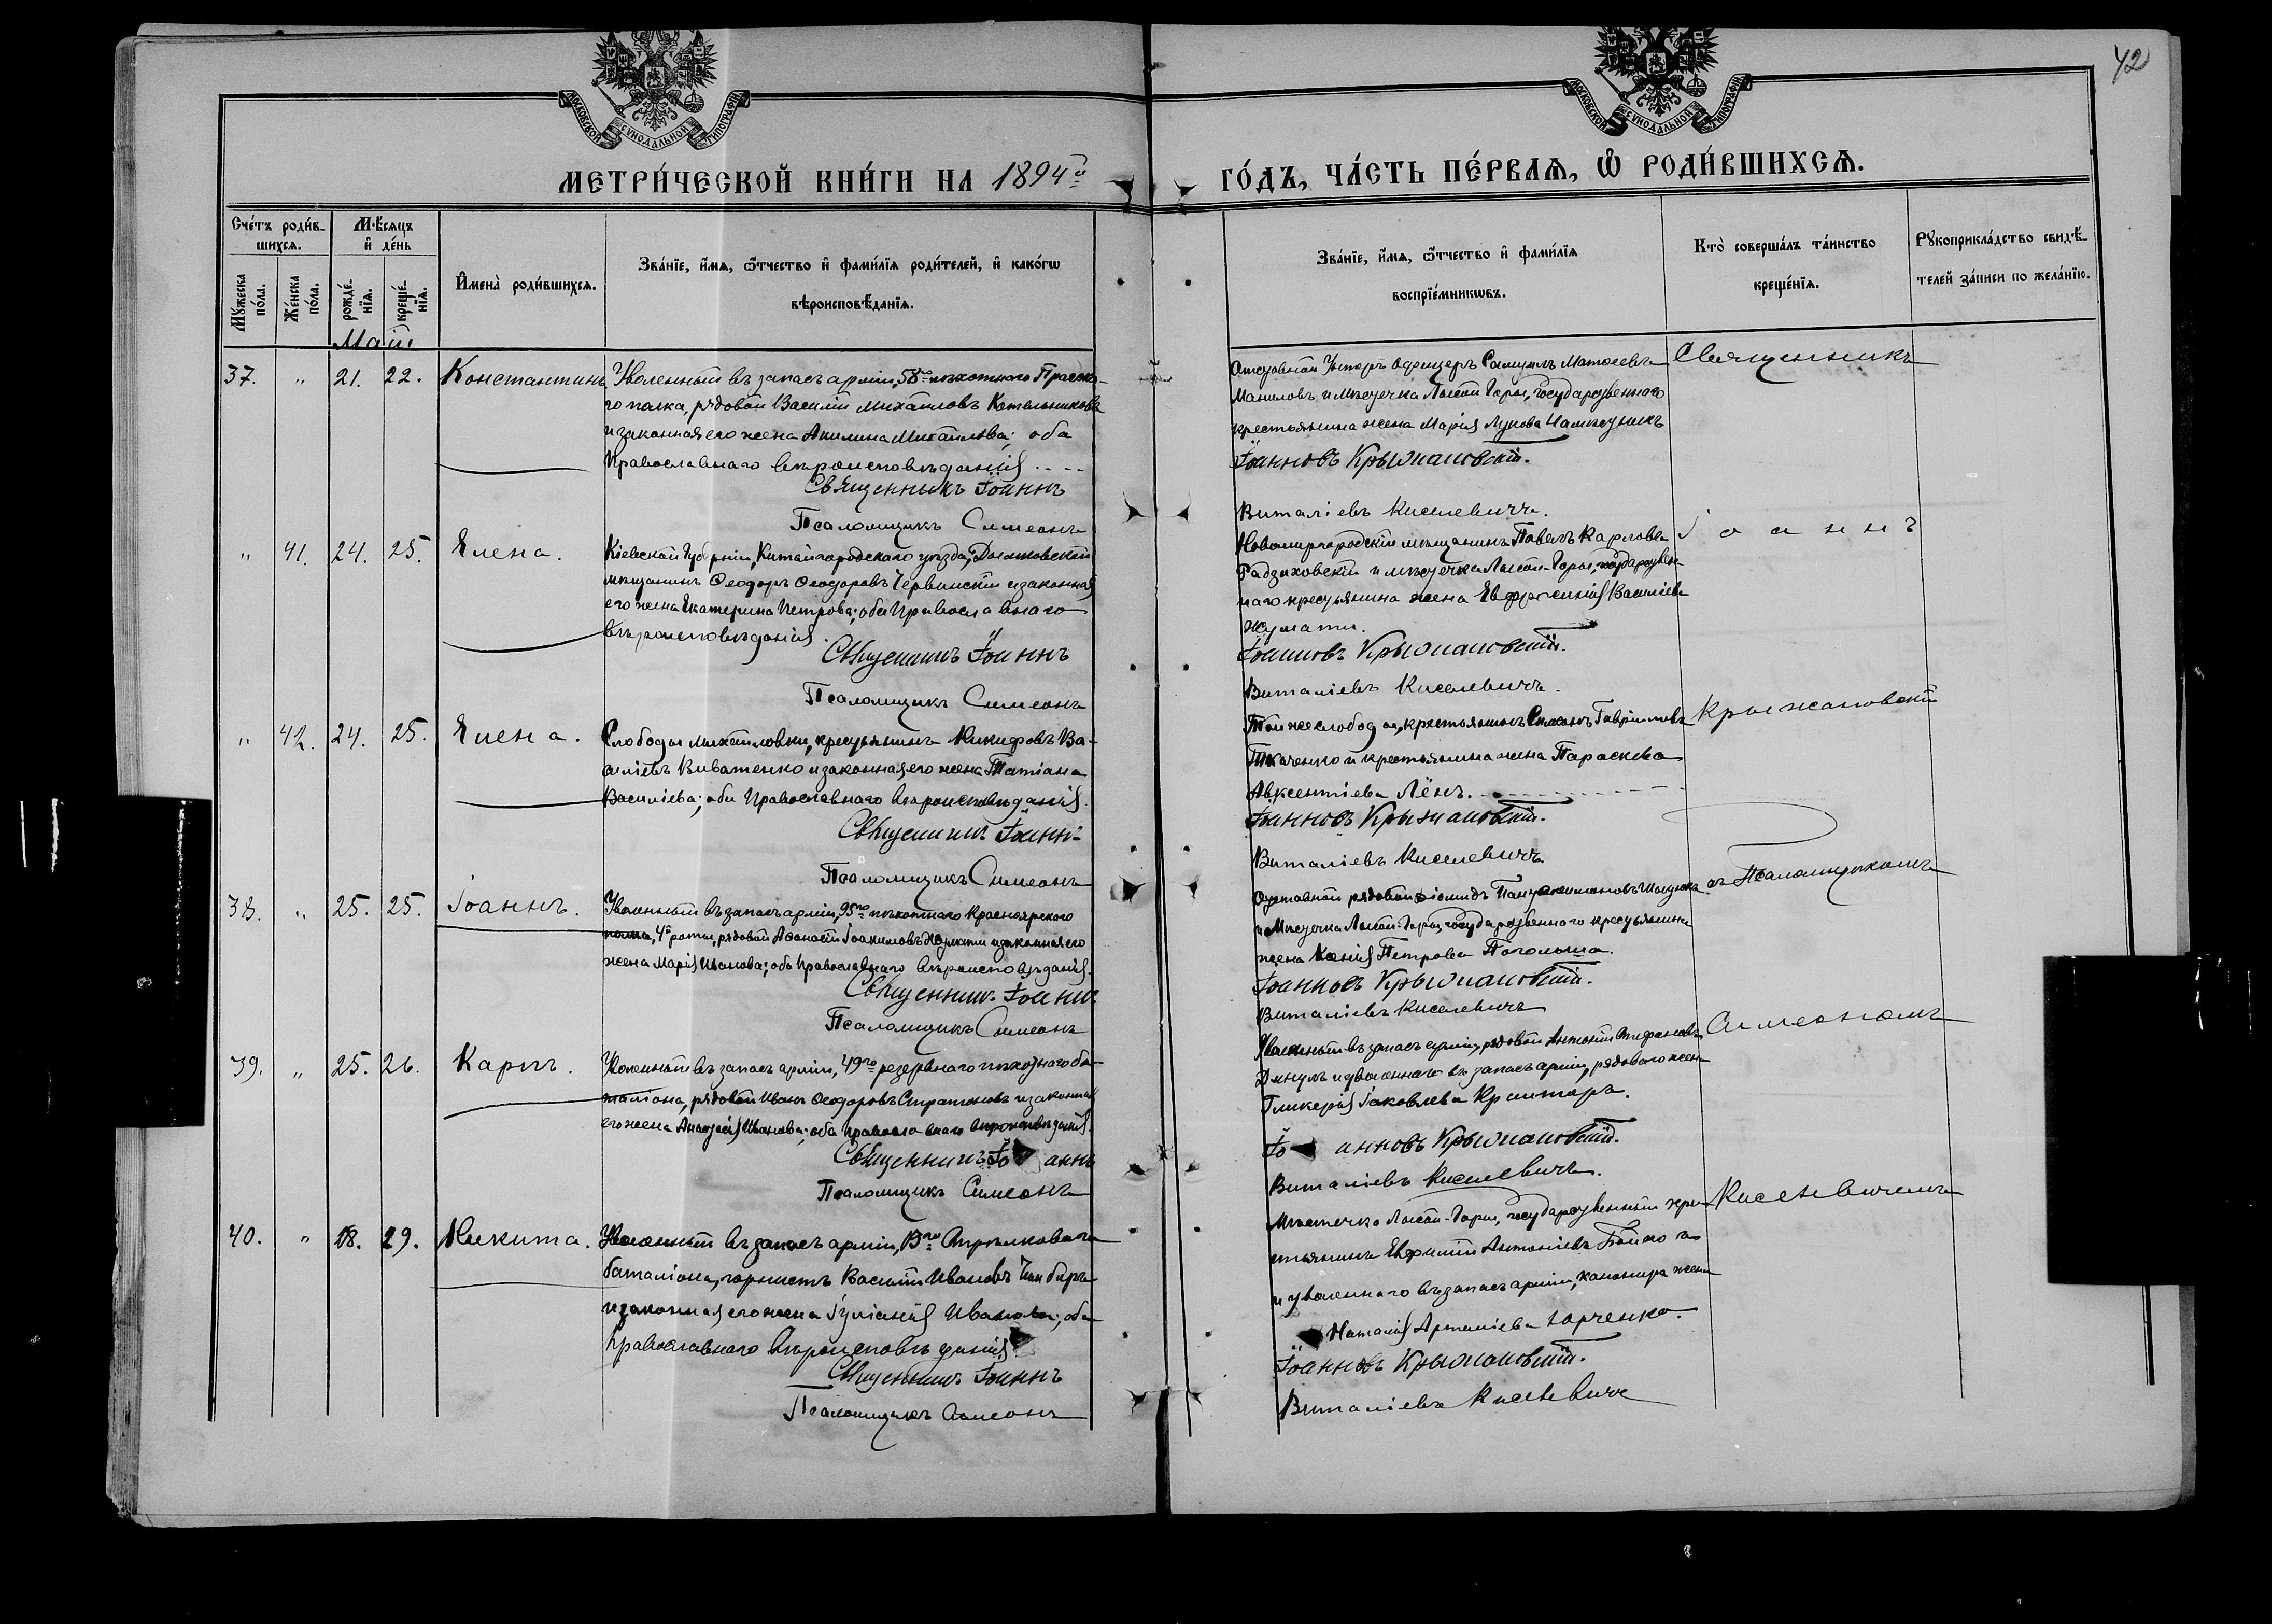 42
МОСКОВСКОЙ СУНОДАЛЬНОЙ ТИПОГРАФІИ
МОСКОВСКОЙ СУНОДАЛЬНОЙ ТИПОГРАФІИ
МЕТРИ́ЧЕСКОЙ КНИ́ГИ НА 1894й
ГО́ДЪ, ЧА́СТЬ ПЕ́РВАѦ, Ѿ РОДИ́ВШИХСѦ.
Сче́тъ роди́в-
шихсѧ.
Мѣ́сѧцъ
и҆ де́нь
Мꙋжеска
по́ла.
Же́нска
по́ла.
рожде́-
нїѧ.
креще́-
нїѧ.
И҆мена̀ роди́вшихсѧ.
Зва́нїе, и҆́мѧ, ѻ҆́тчество и҆ фами́лїѧ роди́телей, и҆ како́гѡ
вѣроисповѣ́данїѧ.
Зва́нїе, и҆́мѧ, ѻ҆́тчество и҆ фами́лїѧ
воспрїе́мникѡвъ.
Кто̀ соверша́лъ та́инство
креще́нїѧ.
Рꙋкоприкла́дство свидѣ́-
телей за́писи по жела́нїю.
Май
37. " 21. 22. Константинъ
Уволенный въ запасъ арміи, 58го пѣхотнаго Прагска-
го полка, рядовой Василій Михайловъ Котельниковъ
и законная его жена Акилина Михайлова; оба
Православнаго вѣроисповѣданія
Священникъ Іоаннъ
Псаломщикъ Симеонъ
Отставной Унтеръ Офицеръ Матвеевъ
Маниловъ и мѣстечка Лысой Горы, государственнаго
крестьянина жена Марія Лукова
Іоанновъ Крыжановскій.
Виталіевъ Киселевичъ.
Священникъ
" 41. 24. 25. Елена.
Кіевской Губерніи, уѣзда,
мѣщанинъ Ѳеодоръ Ѳеодоровъ Червинскій и законная
его жена Екатерина Петрова; оба Православнаго
вѣроисповѣданія.
Священникъ Іоаннъ
Псаломщикъ Симеонъ
Новомиргородскій мѣщанинъ Павелъ Карловъ
Радзиховскій и мѣстечка Лысой-Горы, государствен-
наго крестьянина жена Евфросинія Василіева
Жумати.
Іоанновъ Крыжановскій.
Виталіевъ Киселевичъ.
Іоаннъ
" 42. 24. 25. Елена.
Слободы Михайловки, крестьянинъ Никифоръ Ва-
силіевъ Виватенко и законная его жена Татіана
Василіева; оба Православнаго вѣроисповѣданія.
Священникъ Іоаннъ
Псаломщикъ Симеонъ
Той же слободы, крестьянинъ Симеонъ Гавриловъ
Ткаченко и крестьянина жена Параскева
Авксентіева Лёнъ.
Іоанновъ Крыжановскій.
Виталіевъ Киселевичъ.
Крыжановскій
38. " 25. 25. Іоаннъ.
Уволенный въ запасъ арміи, 95го пѣхотнаго Красноярскаго
полка, 4й роты, рядовой Аѳанасій Іоакимовъ Жумати и законная его
жена Марія Иванова; оба Православнаго вѣроисповѣданія.
Священникъ Іоаннъ
Псаломщикъ Симеонъ
Отставной рядовой Діомидъ Пантелеимоновъ
и Мѣстечка Лысой-Горы, государственнаго крестьянина
жена Ксенія Петрова
Іоанновъ Крыжановскій.
Виталіевъ Киселевичъ
съ Псаломщикомъ
39. " 25. 26. Карпъ.
Уволенный въ запасъ арміи, 49го резервнаго пѣхотнаго ба-
таліона, рядовой Иванъ Ѳеодоровъ и законная
его жена Анастасія Иванова; оба православнаго вѣроисповѣданія.
Священникъ Іоаннъ
Псаломщикъ Симеонъ
Уволенный въ запасъ арміи, рядовой Антоній Стефановъ
и уволеннаго въ запасъ арміи, рядоваго жена
Гликерія Іаковлева
Іоанновъ Крыжановскій.
Виталіевъ Киселевичъ.
Симеономъ
40. " 18. 29. Никита.
Уволенный въ запасъ арміи, 13го Стрѣлковаго
баталіона, горнистъ Василій Ивановъ
и законная его жена Іуліанія Иванова; оба
Православнаго вѣроисповѣданія
Священникъ Іоаннъ
Псаломщикъ Симеонъ
Мѣстечка Лысой-Горы, государственный кре-
стьянинъ Евфимій Антоніевъ Бойко
и уволеннаго въ запасъ арміи, канонира жена
Наталія Артеміева Юрченко.
Іоанновъ Крыжановскій.
Виталіевъ Киселевичъ
Киселевичемъ